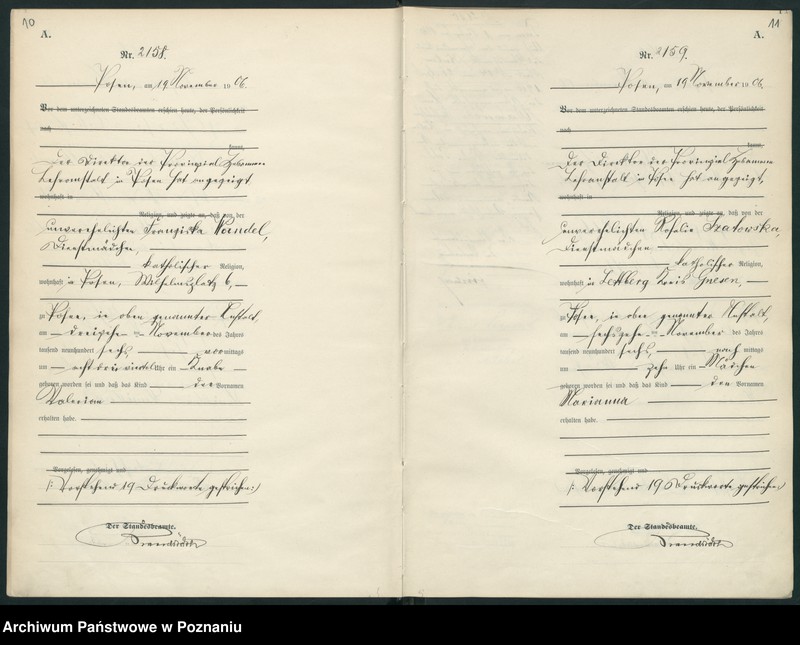 10
A.
Nr. 2158.
Posen, am 19 November 1906.
Vor dem unterzeichneten Standesbeamten erschien heute, der Persönlichkeit
nach
kannt,
Der Direktor der Provinzial Hebammen
Lehranstalt in Posen hat angezeigt
wohnhaft in
Religion, und zeigte an, daß von der
unverehelichten Franziska
Dienstmädchen,
katholischer Religion,
wohnhaft in Posen, Wilhelmsplatz 6,
zu Posen, in oben genannter Anstalt,
am dreizehn ten November des Jahres
tausend neunhundert sechs, vor mittags
um acht drei viertel Uhr ein Knabe
geboren worden sei und daß das Kind den Vornamen
Valerian
erhalten habe.
Vorgelesen, genehmigt und
(: Vorstehend 19 Druckworte gestrichen:)
Der Standesbeamte.
11
A.
Nr. 2159.
Posen, am 19 November 1906.
Vor dem unterzeichneten Standesbeamten erschien heute, der Persönlichkeit
nach
kannt,
Der Direktor der Provinzial Hebammen
Lehranstalt in Posen hat angezeigt,
wohnhaft in
Religion, und zeigte an, daß von der
unverehelichten Rosalie
Dienstmädchen
katholischer Religion,
wohnhaft in Kreis Gnesen,
zu Posen, in oben genannter Anstalt,
am sechszehn ten November des Jahres
tausend neunhundert sechs, nach mittags
um zehn Uhr ein Mädchen
geboren worden sei und daß das Kind den Vornamen
Marianna
erhalten habe.
Vorgelesen, genehmigt und
(: Vorstehend 19 Druckworte gestrichen:)
Der Standesbeamte.
Archiwum Państwowe w Poznaniu